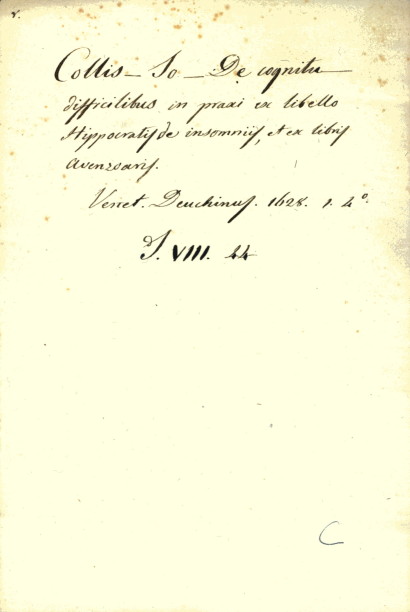 Collis – Jo – De cognitu
difficilibus in praxi ex libello
Hippocratis de insomniis, et ex libris
Avenzoaris.
Venet. Deuchinus. 1628. 1. 4°.
J. VIII. 44
C